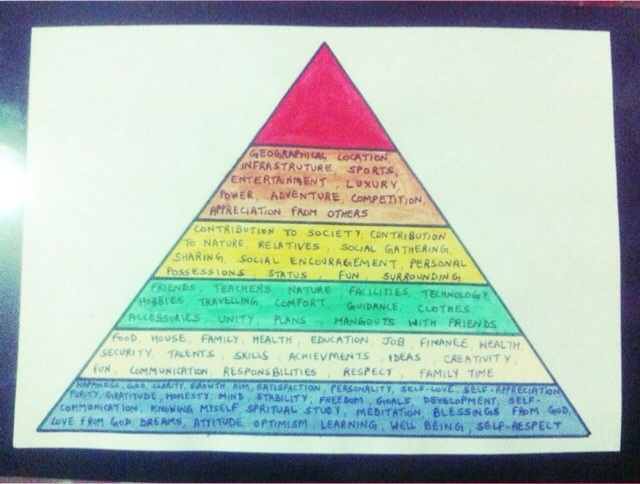 GEOGRAPHICAL LOCATION,
INFRASTRUTURE, SPORTS,
ENTERTAINMENT, LUXURY,
POWER, ADVENTURE, COMPETITION,
APPRECIATION FROM OTHERS
CONTRIBUTION TO SOCIETY, CONTRIBUTION
TO NATURE, RELATIVES, SOCIAL GATHERING,
SHARING, SOCIAL ENCOURAGEMENT, PERSONAL
POSSESSIONS, STATUS, FUN, SURROUNDING
FRIENDS, TEACHERS, NATURE, FACILITIES, TECHNOLOGY,
HOBBIES, TRAVELLING, COMFORT, GUIDANCE, CLOTHES,
ACCESSORIES, UNITY, PLANS, HANGOUTS WITH FRIENDS
FOOD, HOUSE, FAMILY, HEALTH, EDUCATION, JOB, FINANCE, WEALTH,
SECURITY, TALENTS, SKILLS, ACHIEVMENTS, IDEAS, CREATIVITY,
FUN, COMMUNICATION, RESPONSBILITIES, RESPECT, FAMILY TIME
HAPPINESS, GOD, CLARITY, GROWTH, AIM, SATISFACTION, PERSONALITY, SELF-LOVE, SELF-APPRECIATION,
PURITY, GIRATITUDE, HONESTY, MIND, STABILITY, FREEDOM, GOALS, DEVELOPMENT, SELF-
COMMUNICATION, KNOWING MYSELF, SPRITUAL STUDY, MEDITATION, BLESSINGS FROM GOD,
LOVE FROM GOD, DREAMS, ATTITUDE, OPTIMISM, LEARNING, WELL BEING, SELF-RESPECT